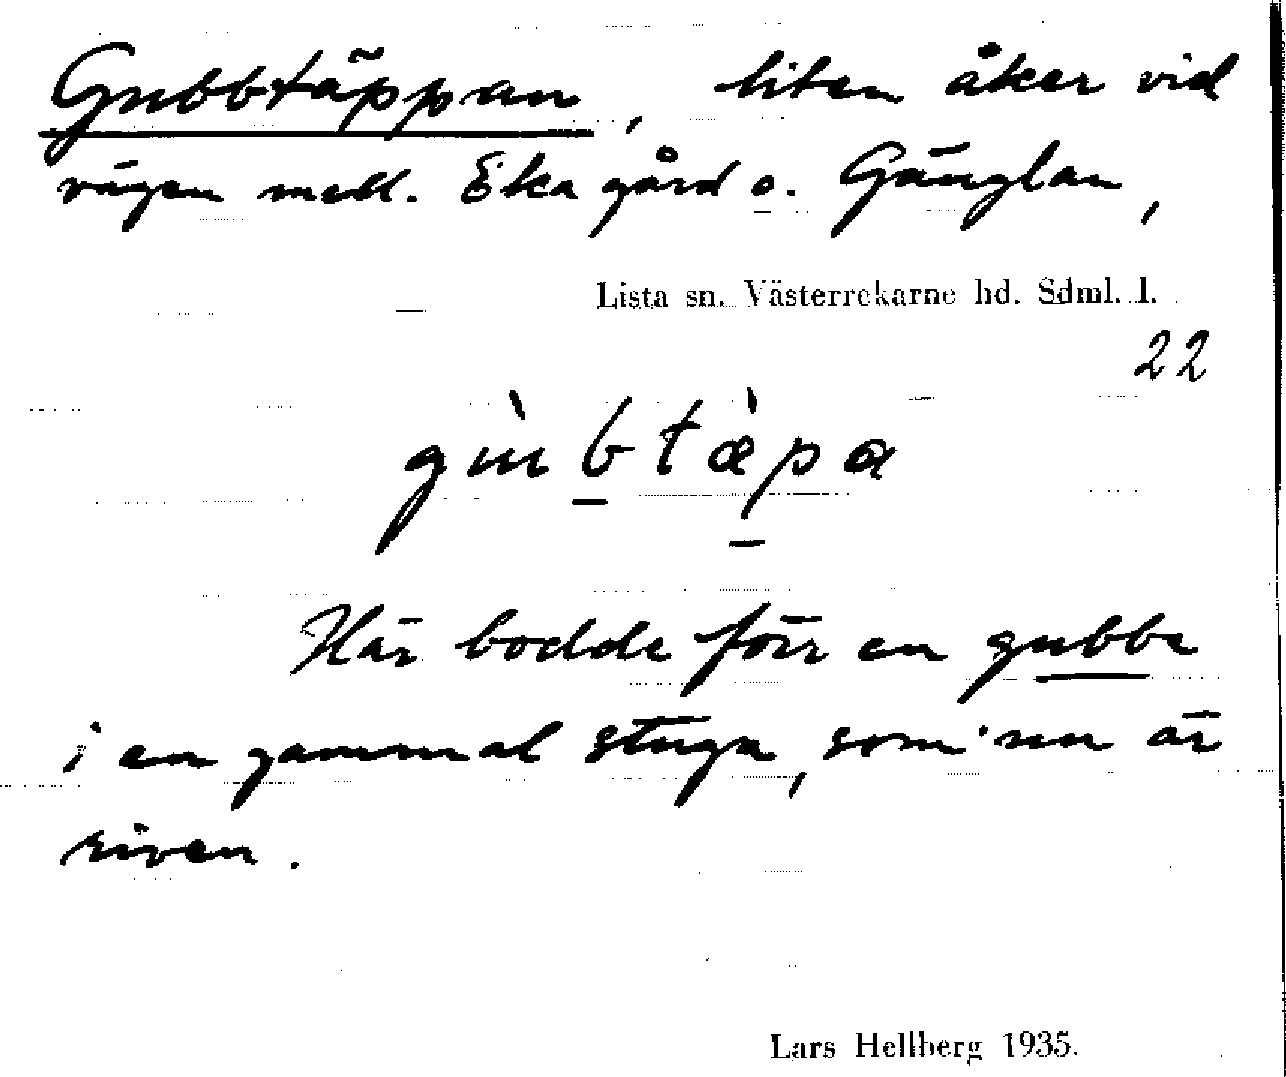 Gubbtäppan, liten åker vid
vägen mell. Eka gård o. Gänglan,
Lista sn. Västerrekarne hd. Sdml. l.
22
gùbtæ̀pa
Här bodde förr en gubbe
i en gammal stuga, som nu är
riven.
Lars Hellberg 1935.